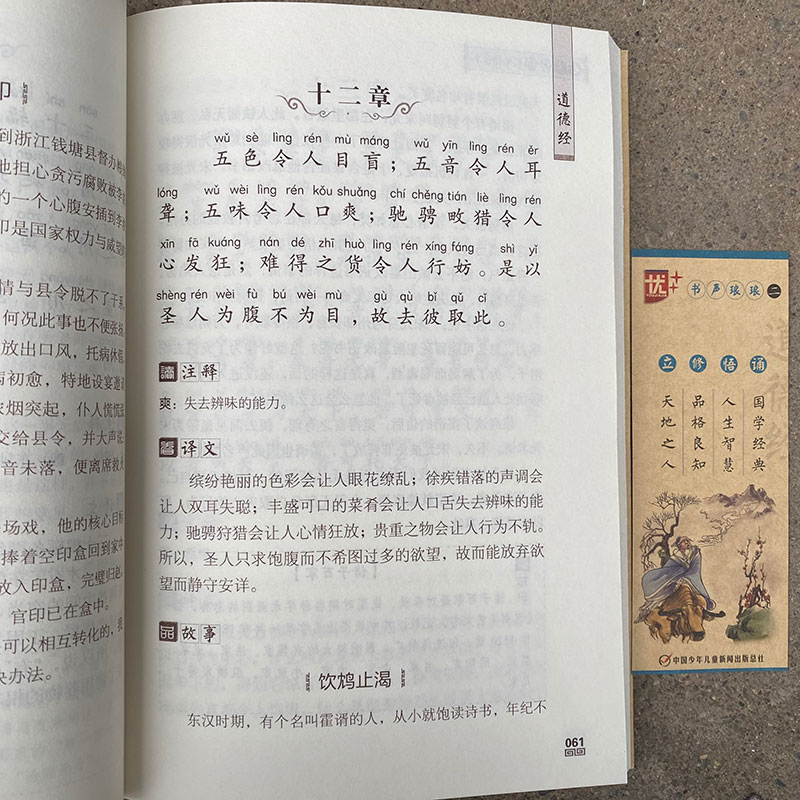 印
到浙江钱塘县督办
他担心贪污腐败被李
的一个心腹安插到李
印是国家权力与威望
情与县令脱不了干系
何况此事也不便张扬
放出口风，托病休假
病初愈，特地设宴邀
浓烟突起，仆人慌慌
交给县令，并大声说
音未落，便离席救火
场戏，他的核心目标
捧着空印盒回到家中
放入印盒，完璧归赵
官印已在盒中。
可以相互转化的，我
决办法。
道德经
十二章
wǔ sè lìng rén mù máng wǔ yīn lìng rén ěr
五色令人目盲；五音令人耳
lóng wǔ wèi lìng rén kǒu shuǎng chí chěng tián liè lìng rén
聋；五味令人口爽；驰骋畋猎令人
xīn fā kuáng nán dé zhī huò lìng rén xíng fáng shì yǐ
心发狂；难得之货令人行妨。是以
shèng rén wèi fù bú wèi mù gù qù bǐ qǔ cǐ
圣人为腹不为目，故去彼取此。
读注释
爽：失去辨味的能力。
译文
缤纷艳丽的色彩会让人眼花缭乱；徐疾错落的声调会
让人双耳失聪；丰盛可口的菜肴会让人口舌失去辨味的能
力；驰骋狩猎会让人心情狂放；贵重之物会让人行为不轨。
所以，圣人只求饱腹而不希图过多的欲望，故而能放弃欲
望而静守安详。
品故事
饮鸩止渴
东汉时期，有个名叫霍谞的人，从小就饱读诗书，年纪不
061
优++
书声琅琅二
立修悟诵
国学经典
人生智慧
品格良知
天地之人
道德经
中国少年儿童新闻出版总社